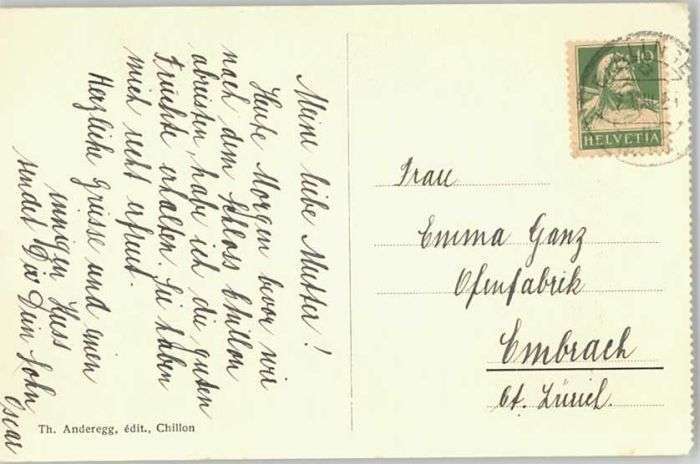 Meine liebe Mutter!
Heute Morgen bevor wir
nach dem Schloss Chillon
abreisten, habe ich die guten
Früchte erhalten. Sie haben
mich recht erfreut.
Herzliche Grüsse und einen
innigen Kuss
sendet Dir Dein Sohn
Oscar
Th. Anderegg, édit., Chillon
10
HELVETIA
Frau
Emma Ganz
Ofenfabrik
Embrach
Ct. Zürich.